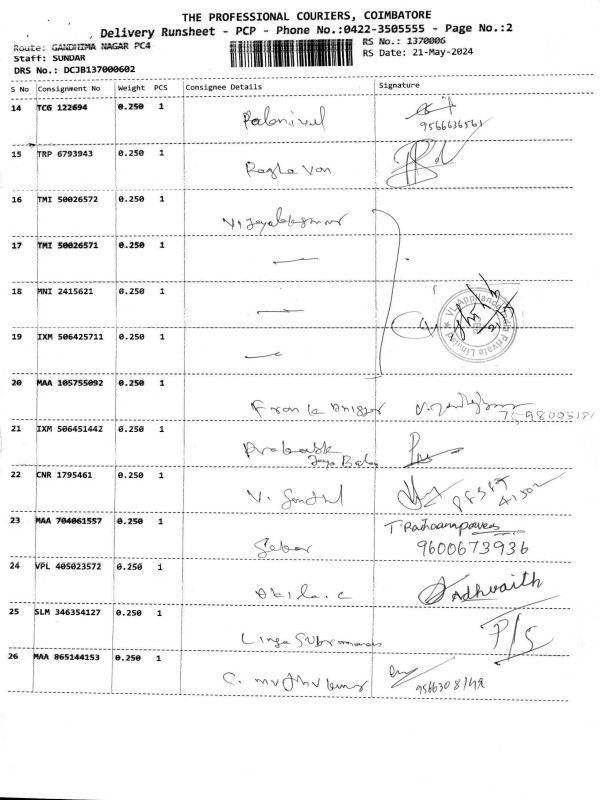 THE PROFESSIONAL COURIERS, COIMBATORE
Delivery Runsheet - PCP - Phone No.:0422-3505555 - Page No.:2
Route: GANDHIMA NAGAR PC4 RS No.: 1370006
Staff: SUNDAR RS Date: 21-May-2024
DRS No.: DCJB137000602
S No Consignment No Weight PCS Consignee Details Signature
14 TCG 122694 0.250 1 Palanivel
9566636561
15 TRP 6793943 0.250 1 Ragha van
16 TMI 50026572 0.250 1
17 TMI 50026571 0.250 1
18 MNI 2415621 0.250 1
19 IXM 506425711 0.250 1
Private Limited
20 MAA 105755092 0.250 1
21 IXM 506451442 0.250 1 Prakash
22 CNR 1795461 0.250 1 V. Senthil
23 MAA 704061557 0.250 1 T. Rathnampowers
9600673936
24 VPL 405023572 0.250 1 Akila. c Aadhvaith
25 SLM 346354127 0.250 1 Linga Subramanian P/S
26 MAA 865144153 0.250 1 C. Muthukumar
9566308149